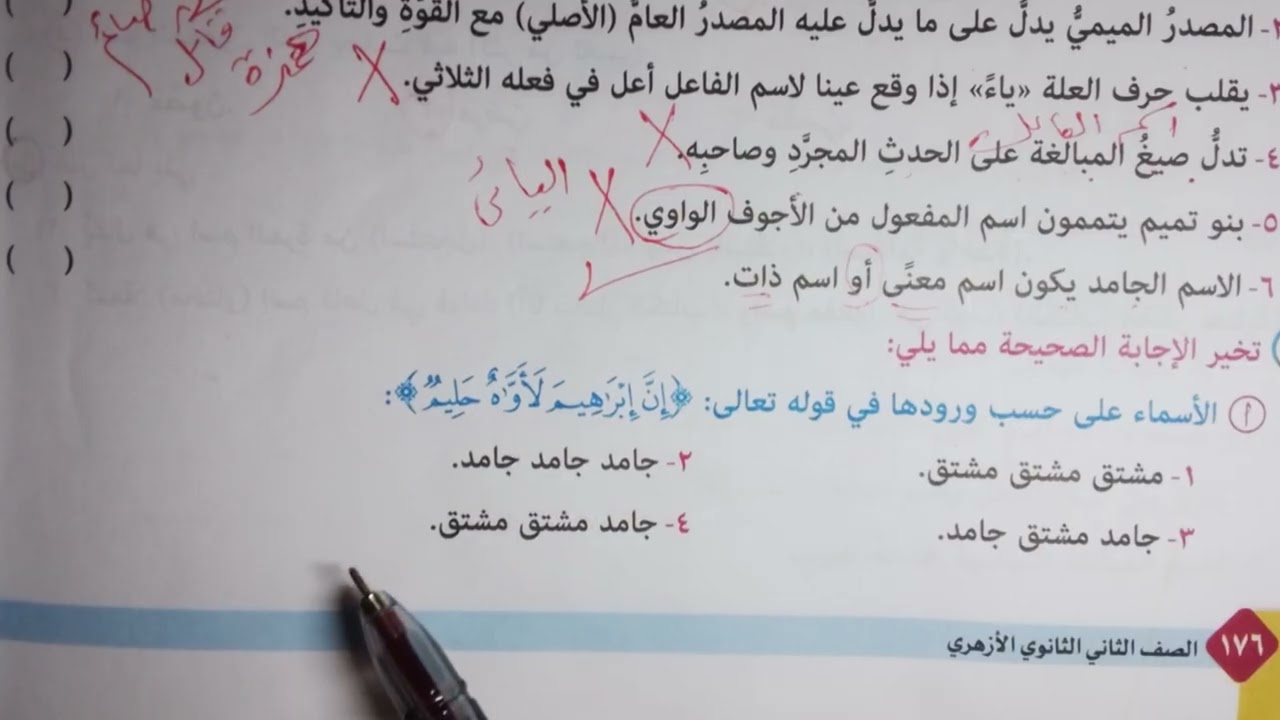 ٢- المصدرُ الميميُّ يدلُّ على ما يدلُّ عليه المصدرُ العامُّ (الأصلي) مع القوَّةِ والتأكيدِ.
همزة قائل
٣- يقلب حرف العلة «ياءً» إذا وقع عينا لاسم الفاعل أعل في فعله الثلاثي. X ( )
اسم الفاعل
٤- تدلُّ صيغُ المبالغة على الحدثِ المجرَّدِ وصاحبِه. X ( )
٥- بنو تميم يتممون اسم المفعول من الأجوف الواوي. X اليائى ( )
٦- الاسم الجامد يكون اسم معنًى أو اسم ذات. ✓ ( )
تخير الإجابة الصحيحة مما يلي:
أ الأسماء على حسب ورودها في قوله تعالى: ﴿إِنَّ إِبْرَاهِيمَ لَأَوَّاهٌ حَلِيمٌ﴾:
١- مشتق مشتق مشتق. ٢- جامد جامد جامد.
٣- جامد مشتق جامد. ٤- جامد مشتق مشتق.
١٧٦ الصف الثاني الثانوي الأزهري